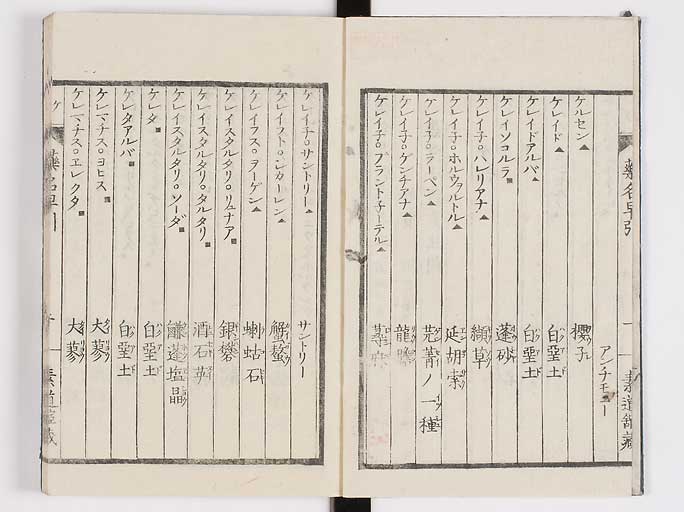 薬名早引
ケルセン▲ 櫻子
アンチモニー
ケレイド▲ 白堊土
ケレイドアルバ▲ 白堊土
ケレイソコルラ■ 蓬砂
ケレイチ○ハレリアナ▲ 纈草
ケレイチ○ホルウォルトル▲ 延胡索
ケレイチ○ラーペン▲ 芫菁ノ一種
ケレイチ○ゲンチアナ▲ 龍膽
ケレイチ○ブラントネーテル▲
素道館藏
ケレイチ○サントリー▲ サントリー
ケレイフト○シカーレン▲ 蟹螯
ケレイフス○ヲーゲン▲ 蝲蛄石
ケレイスタルタリ○リュナア■ 銀礬
ケレイスタルタリ○タルタリ■ 酒石英
ケレイスタルタリ○ソーダ■ 鹻蓬塩晶
ケレタ■ 白堊土
ケレタアルバ■ 白堊土
ケレマチス○ヨヒス■ 大蓼
ケレマチス○エレクタ■ 大蓼
ケ
薬名早引